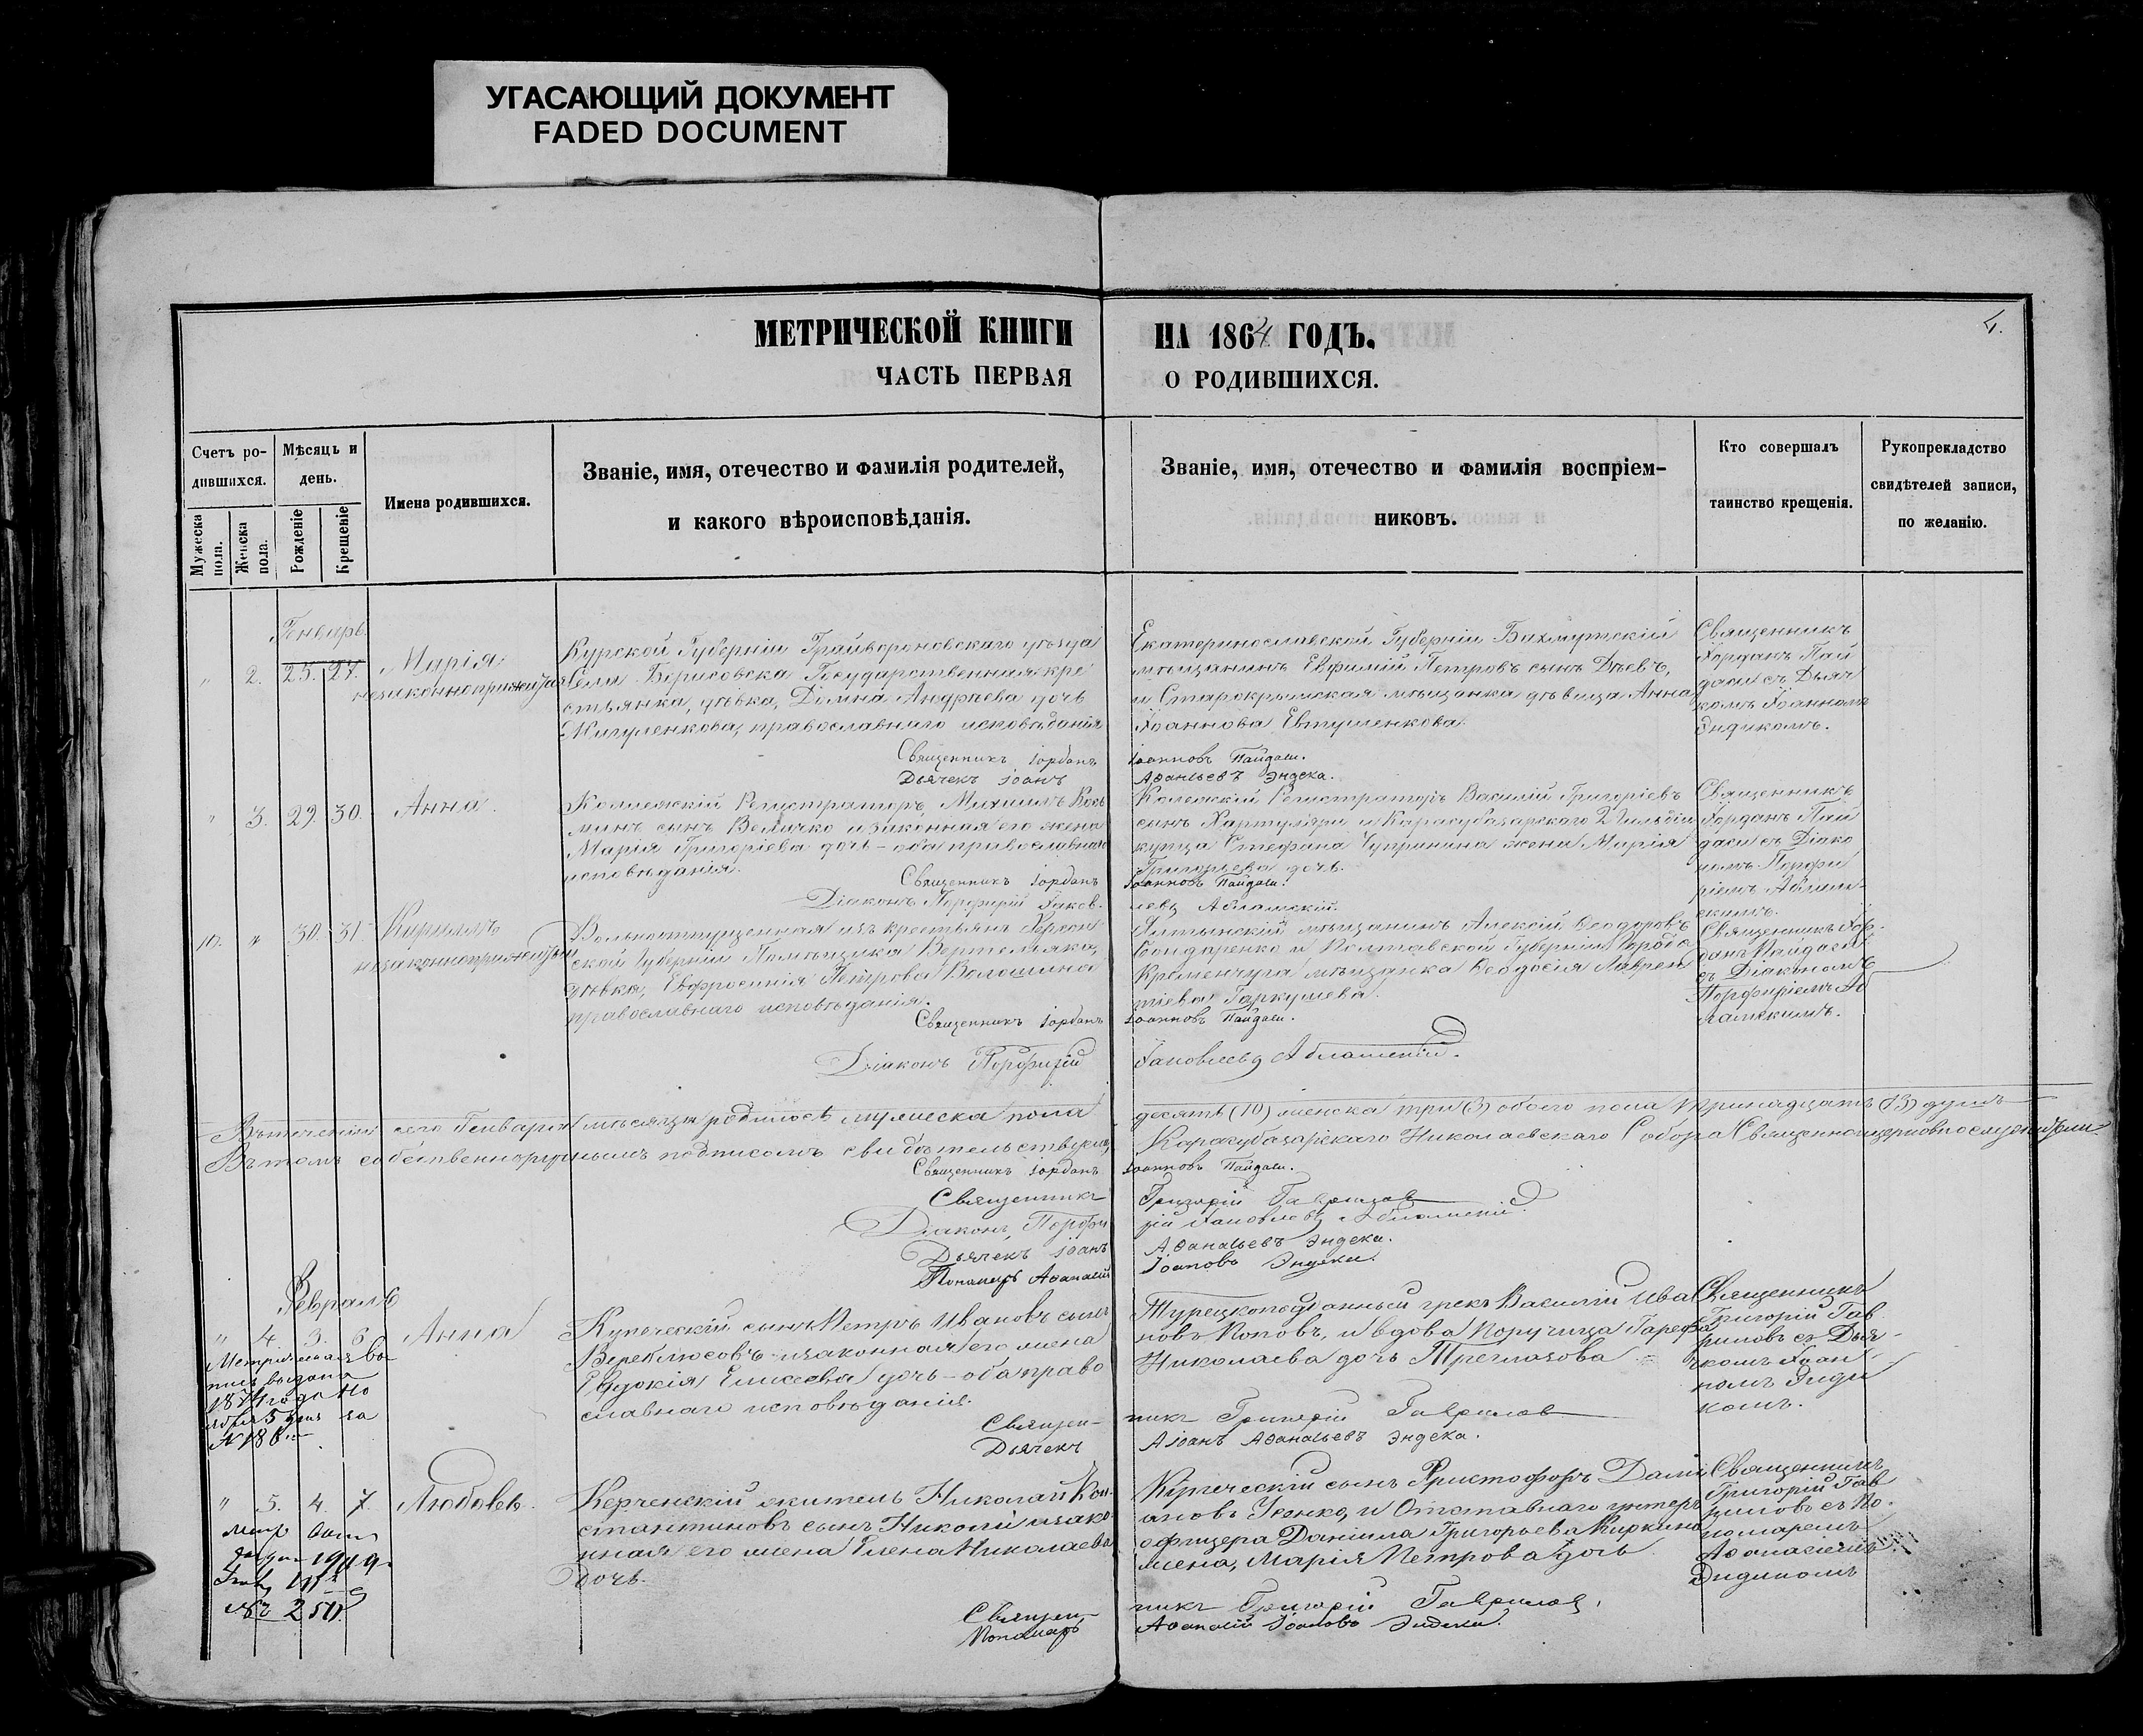 УГАСАЮЩИЙ ДОКУМЕНТ
FADED DOCUMENT
МЕТРИЧЕСКОЙ КНИГИ НА 1864 ГОДЪ.
4.
ЧАСТЬ ПЕРВАЯ О РОДИВШИХСЯ.
Счетъ ро-
дившихся.
Мужеска пола.
Женска пола.
Мѣсяцъ и
день.
Рожденіе
Крещеніе
Имена родившихся.
Званіе, имя, отечество и фамилія родителей,
и какого вѣроисповѣданія.
Званіе, имя, отечество и фамилія воспріем-
никовъ.
Кто совершалъ
таинство крещенія.
Рукоприкладство
свидѣтелей записи,
по желанію.
Генварь
" 2. 25. 27.
Марія
незаконнорожденная
Курской Губерніи Грайвороновскаго уѣзда
Села Борисовска Государственная кре
стьянка, дѣвка, Домна Андреева дочь
Жигуленкова, православнаго исповѣданія
Священникъ Іорданъ
Дьячекъ Іоанъ
Екатеринославской Губерніи Бахмутскій
мѣщанинъ Евфимій Петровъ сынъ Дѣевъ,
и Старокрымская мѣщанка дѣвица Анна
Іоаннова Евтушенкова.
Іоанновъ Пайдаси.
Аѳанасьевъ Эндека.
Священникъ
Іорданъ Пай
даси съ Дьяч
комъ Іоанномъ
Эндикомъ.
" 3. 29. 30.
Анна.
Коллежскій Регистраторъ Михаилъ Козь
минъ сынъ Величко и законная его жена
Марія Григоріева дочь - оба православнаго
исповѣданія.
Священникъ Іорданъ
Діаконъ Порфирій Іаков-
Колежскій Регистраторъ Василій Григоріевъ
сынъ Хартуляри и Карасубазарскаго 2 Гильдіи
купца Стефана Чупринина жена Марія
Григорьева дочь.
Іоанновъ Пайдаси.
левъ Абламскій.
Священникъ
Іорданъ Пай
даси съ Діако
номъ Порфи
ріемъ Аблам-
скимъ.
10. " 30. 31.
Кириллъ
незаконнорожденный
Вольноотпущенная изъ крестьянъ Херсон
ской Губерніи Помѣщика Вертеляка,
дѣвка, Евфросинія Петрова Волошина
православнаго исповѣданія.
Священникъ Іорданъ
Діаконъ Порфирій
Ялтынскій мѣщанинъ Алексій Ѳеодоровъ
Бондаренко и Полтавской Губерніи Города
Кременчуга мѣщанка Ѳеодосія Лаврен
тіева Гаркушева.
Іоанновъ Пайдаси.
Іаковлевъ Абламскій.
Священникъ Іор-
данъ Пайдаси
съ Діакономъ
Порфиріемъ Аб
ламскимъ.
Въ теченіи сего Генваря мѣсяца родилось мужеска пола десять (10) женска три (3) обоего пола тринадцать (13) душъ
Въ томъ собственноручнымъ подписомъ свидѣтельствуемъ, Карасубазарскаго Николаевскаго Собора Священноцерковнослужители.
Священникъ Іорданъ Іоанновъ Пайдаси.
Священникъ Григорій Гавриловъ
Діаконъ Порфирій Іаковлевъ Абламскій.
Дьячекъ Іоанъ Аѳанасьевъ Эндека.
Пономарь Аѳанасій Іоановъ Эндека.
Февраль
" 4. 3. 6.
Анна
Метрическая вы
пись выдана
1874 года Но
ября 5 дня за
№ 186
Купеческій сынъ Петръ Ивановъ сынъ
Вереклюсовъ и законная его жена
Евдокія Елисеева дочь - оба право
славнаго исповѣданія.
Священ-
Дьячекъ
Турецкоподанный грекъ Василій Ива
новъ Поповъ, и вдова Поручица Парефа
Николаева дочь Треглазова
никъ Григорій Гавриловъ
Іоанъ Аѳанасьевъ Эндека.
Священникъ
Григорій Гав
риловъ съ Дья-
чкомъ Іоан
номъ Энди
комъ.
" 5. 4. 7.
Любовь.
1919
Керченскій житель Николай Кон-
стантиновъ сынъ Николи и зако-
нная его жена Елена Николаева
дочь.
Священ-
Пономарь
Купеческій сынъ Христофоръ Дамі
ановъ и Отставнаго унтеръ
офицера Даніила Григорьева Киркина
жена, Марія Петрова дочь
никъ Григорій Гавриловъ.
Аѳанасій Іоановъ Эндека.
Священникъ
Григорій Гав
риловъ съ По-
номаремъ
Аѳанасіемъ
Эндикомъ